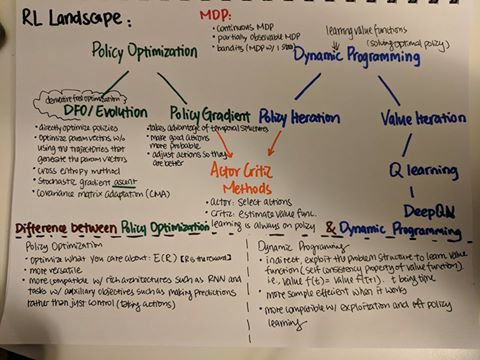 RL Landscape:
MDP:
• continuous MDP
• partially observable MDP
• bandits (MDP w/ 1 state)
learning value functions
(solving optimal policy)
Policy Optimization
Dynamic Programming
derivative free optimization
DFO/Evolution
• directly optimize policies
• optimize param vectors w/o
using the trajectories that
generate the param vectors
• cross entropy method
• Stochastic gradient ascent
• covariance matrix adaptation (CMA)
Policy Gradient
• takes advantage of temporal structures
• Make good actions
more probable
• adjust actions so they
are better
Policy Iteration
Value Iteration
Actor Critic
Methods
• actor: select actions
• Critic: estimate value func.
• learning is always on policy
Q learning
DeepQN
Difference between Policy Optimization & Dynamic Programming
Policy Optimization
• optimize what you care about: E(R) [R is the reward]
• more versatile
• more compatible w/ rich architectures such as RNN and
tasks w/ auxiliary objectives such as making predictions
rather than just control (taking actions)
Dynamic Programming
• indirect, exploit the problem structure to learn value
function (self consistency property of value function)
i.e., value f(t) = value f(t+1). t being time
• more sample efficient when it works
• more compatible w/ exploitation and off policy
learning